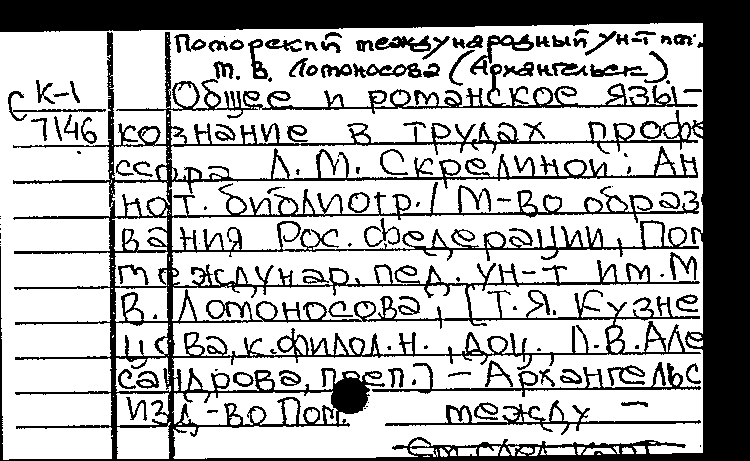 Поморский международный ун-т им.
М. В. Ломоносова (Архангельск)
К-1 Общее и романское язы-
7146 кознание в трудах профе
ссора Л. М. Скрелиной: Ан
нот. библиогр. / М-во образ
вания Рос. Федерации, Пом
междунар. пед. ун-т им. М
В. Ломоносова; [Т. Я. Кузне
цова, к. филол. н., доц., Л. В. Але
сандрова, преп.] – Архангельс
изд-во Пом. между –
См. след. карт